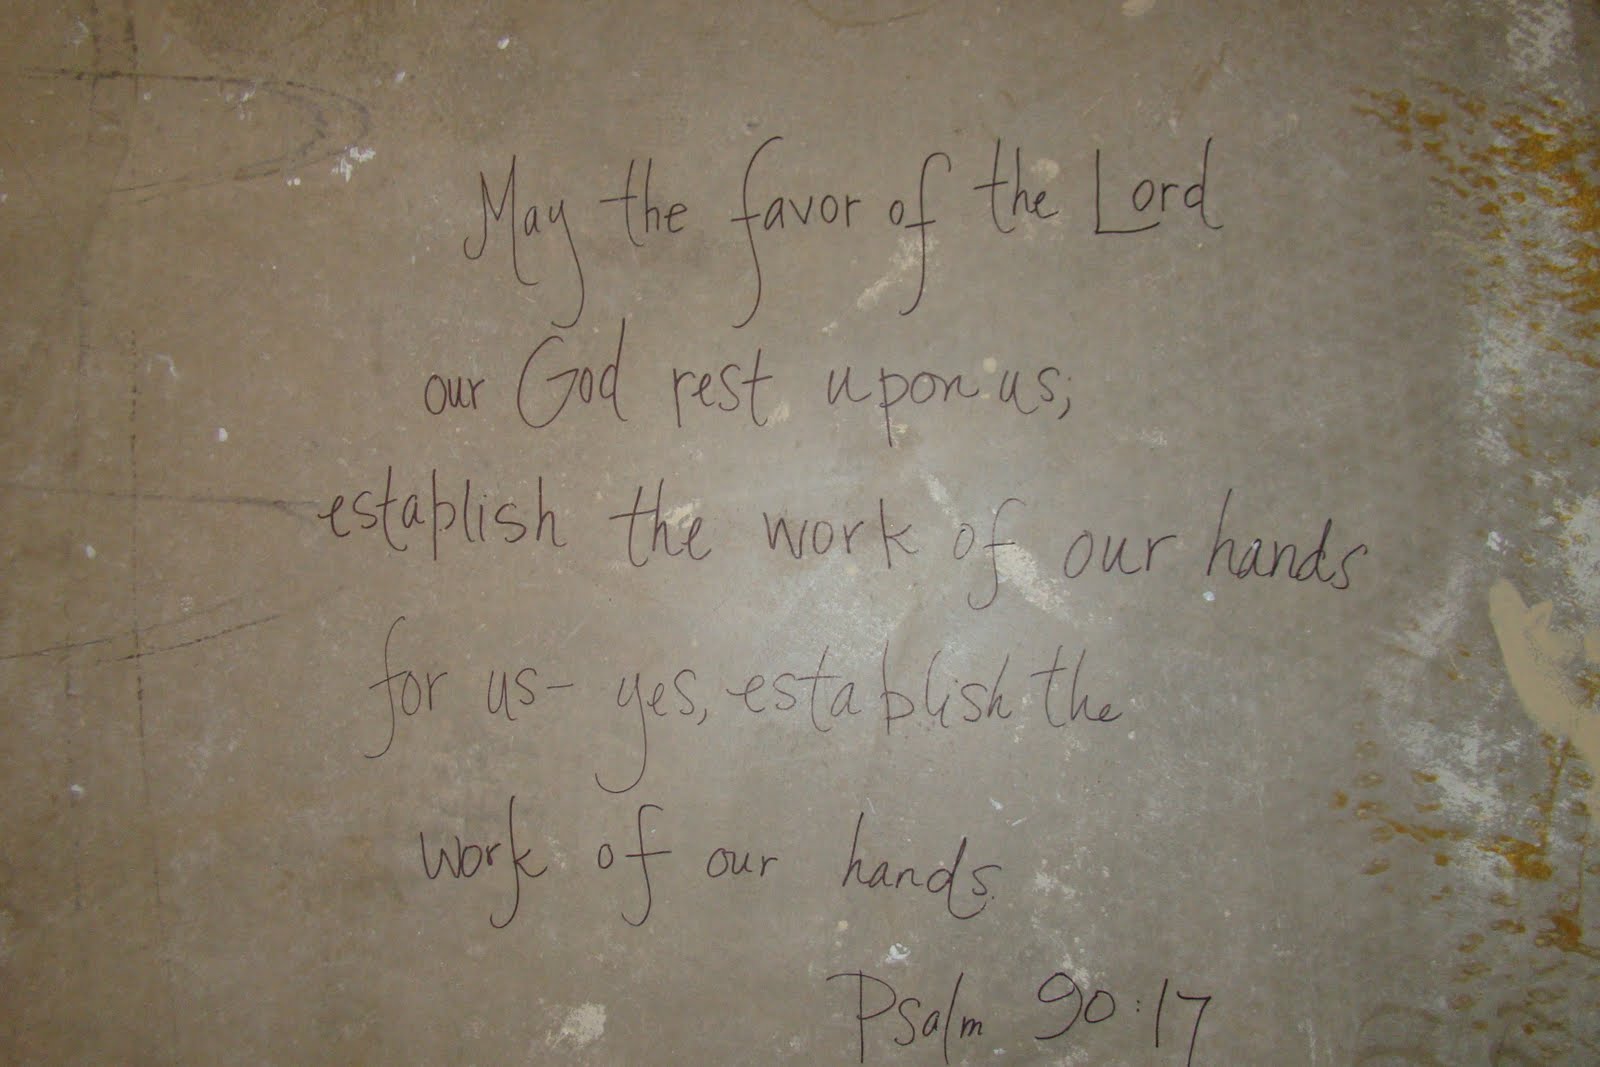 May the favor of the Lord
our God rest upon us;
establish the work of our hands
for us- yes, establish the
work of our hands.
Psalm 90:17